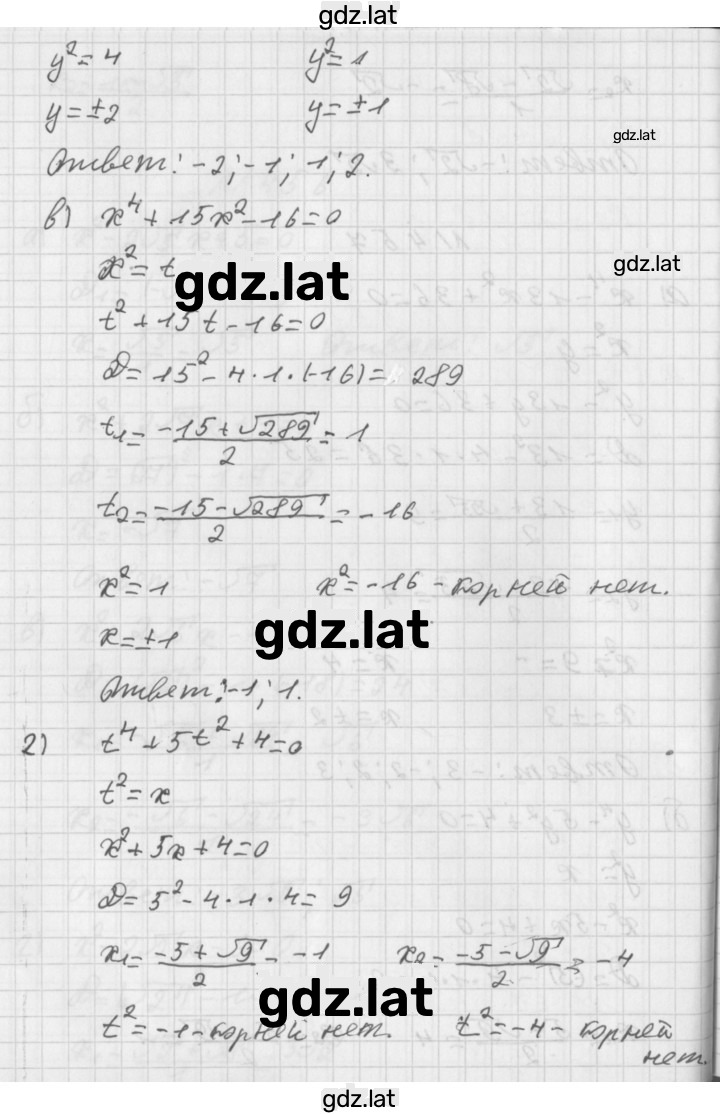 gdz.lat
y²=4 y²=1
y=±2 y=±1
gdz.lat
Ответ: -2; -1; 1; 2.
в) x⁴+15x²-16=0
gdz.lat
x²=t
gdz.lat
t²+15t-16=0
D=15²-4·1·(-16)=289
t₁=(-15+√289)/2=1
t₂=(-15-√289)/2=-16
x²=1 x²=-16 - корней нет.
gdz.lat
x=±1
Ответ: -1; 1.
г) t⁴+5t²+4=0
t²=x
x²+5x+4=0
D=5²-4·1·4=9
x₁=(-5+√9)/2=-1 x₂=(-5-√9)/2=-4
gdz.lat
t²=-1 - корней нет. t²=-4 - корней
нет.
gdz.lat